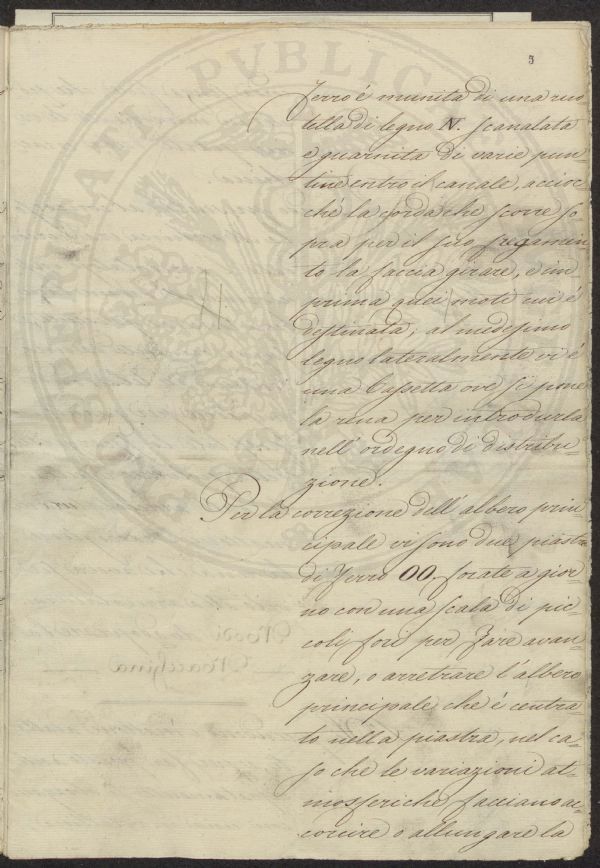 5
PROSPERITATI PVBLICAE
ferro é munita di una ruo
tella di legno N. scanalata
e guarnita di varie pun
tine entro il canale, accioc
ché la corda che scorre so
pra per il suo fregamen
to la faccia girare, e im
prima quei moti cui é
destinata; al medesimo
legno lateralmente vi é
una Cassetta ove si pone
la rena per introdurla
nell' ordegno di distribu-
zione.
Per la correzione dell' albero prin-
cipale vi sono due piastre
di ferro OO, forate a gior-
no con una scala di pic-
coli fori per fare avan-
zare, o arretrare l'albero
principale che é centra-
to nella piastra, nel ca-
so che le variazioni at-
mosferiche facciano ac-
corcire o allungare la